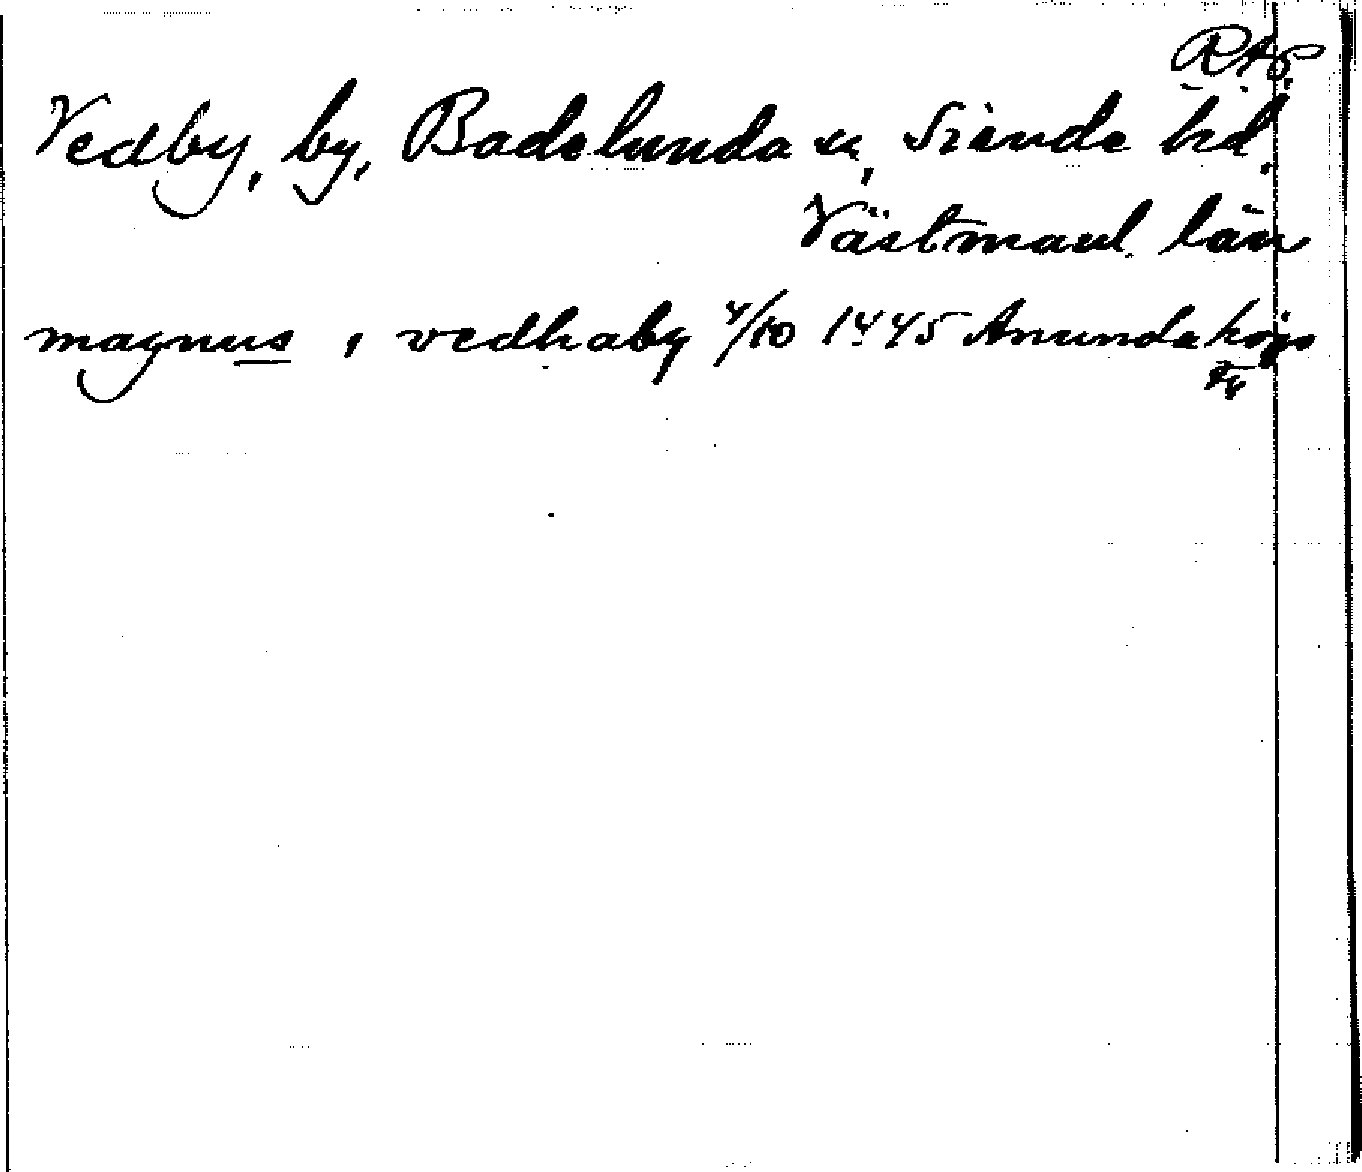 RAp.
Vedby, by, Badelunda sn, Siende hd.
Västmanl. län
magnus i vedhaby 4/10 1445 Anundshögs